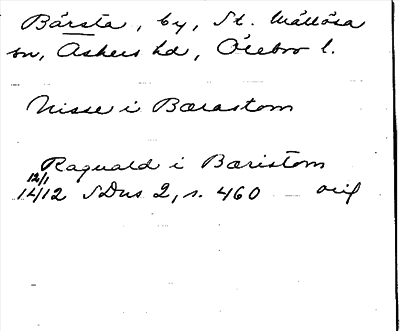 Bärsta, by, St. Mällösa
sn, Askers hd, Örebro l.
Nisse i Bærastom
Raguald i Bæristom
12/1
1412 SDns 2, s. 460 — orig